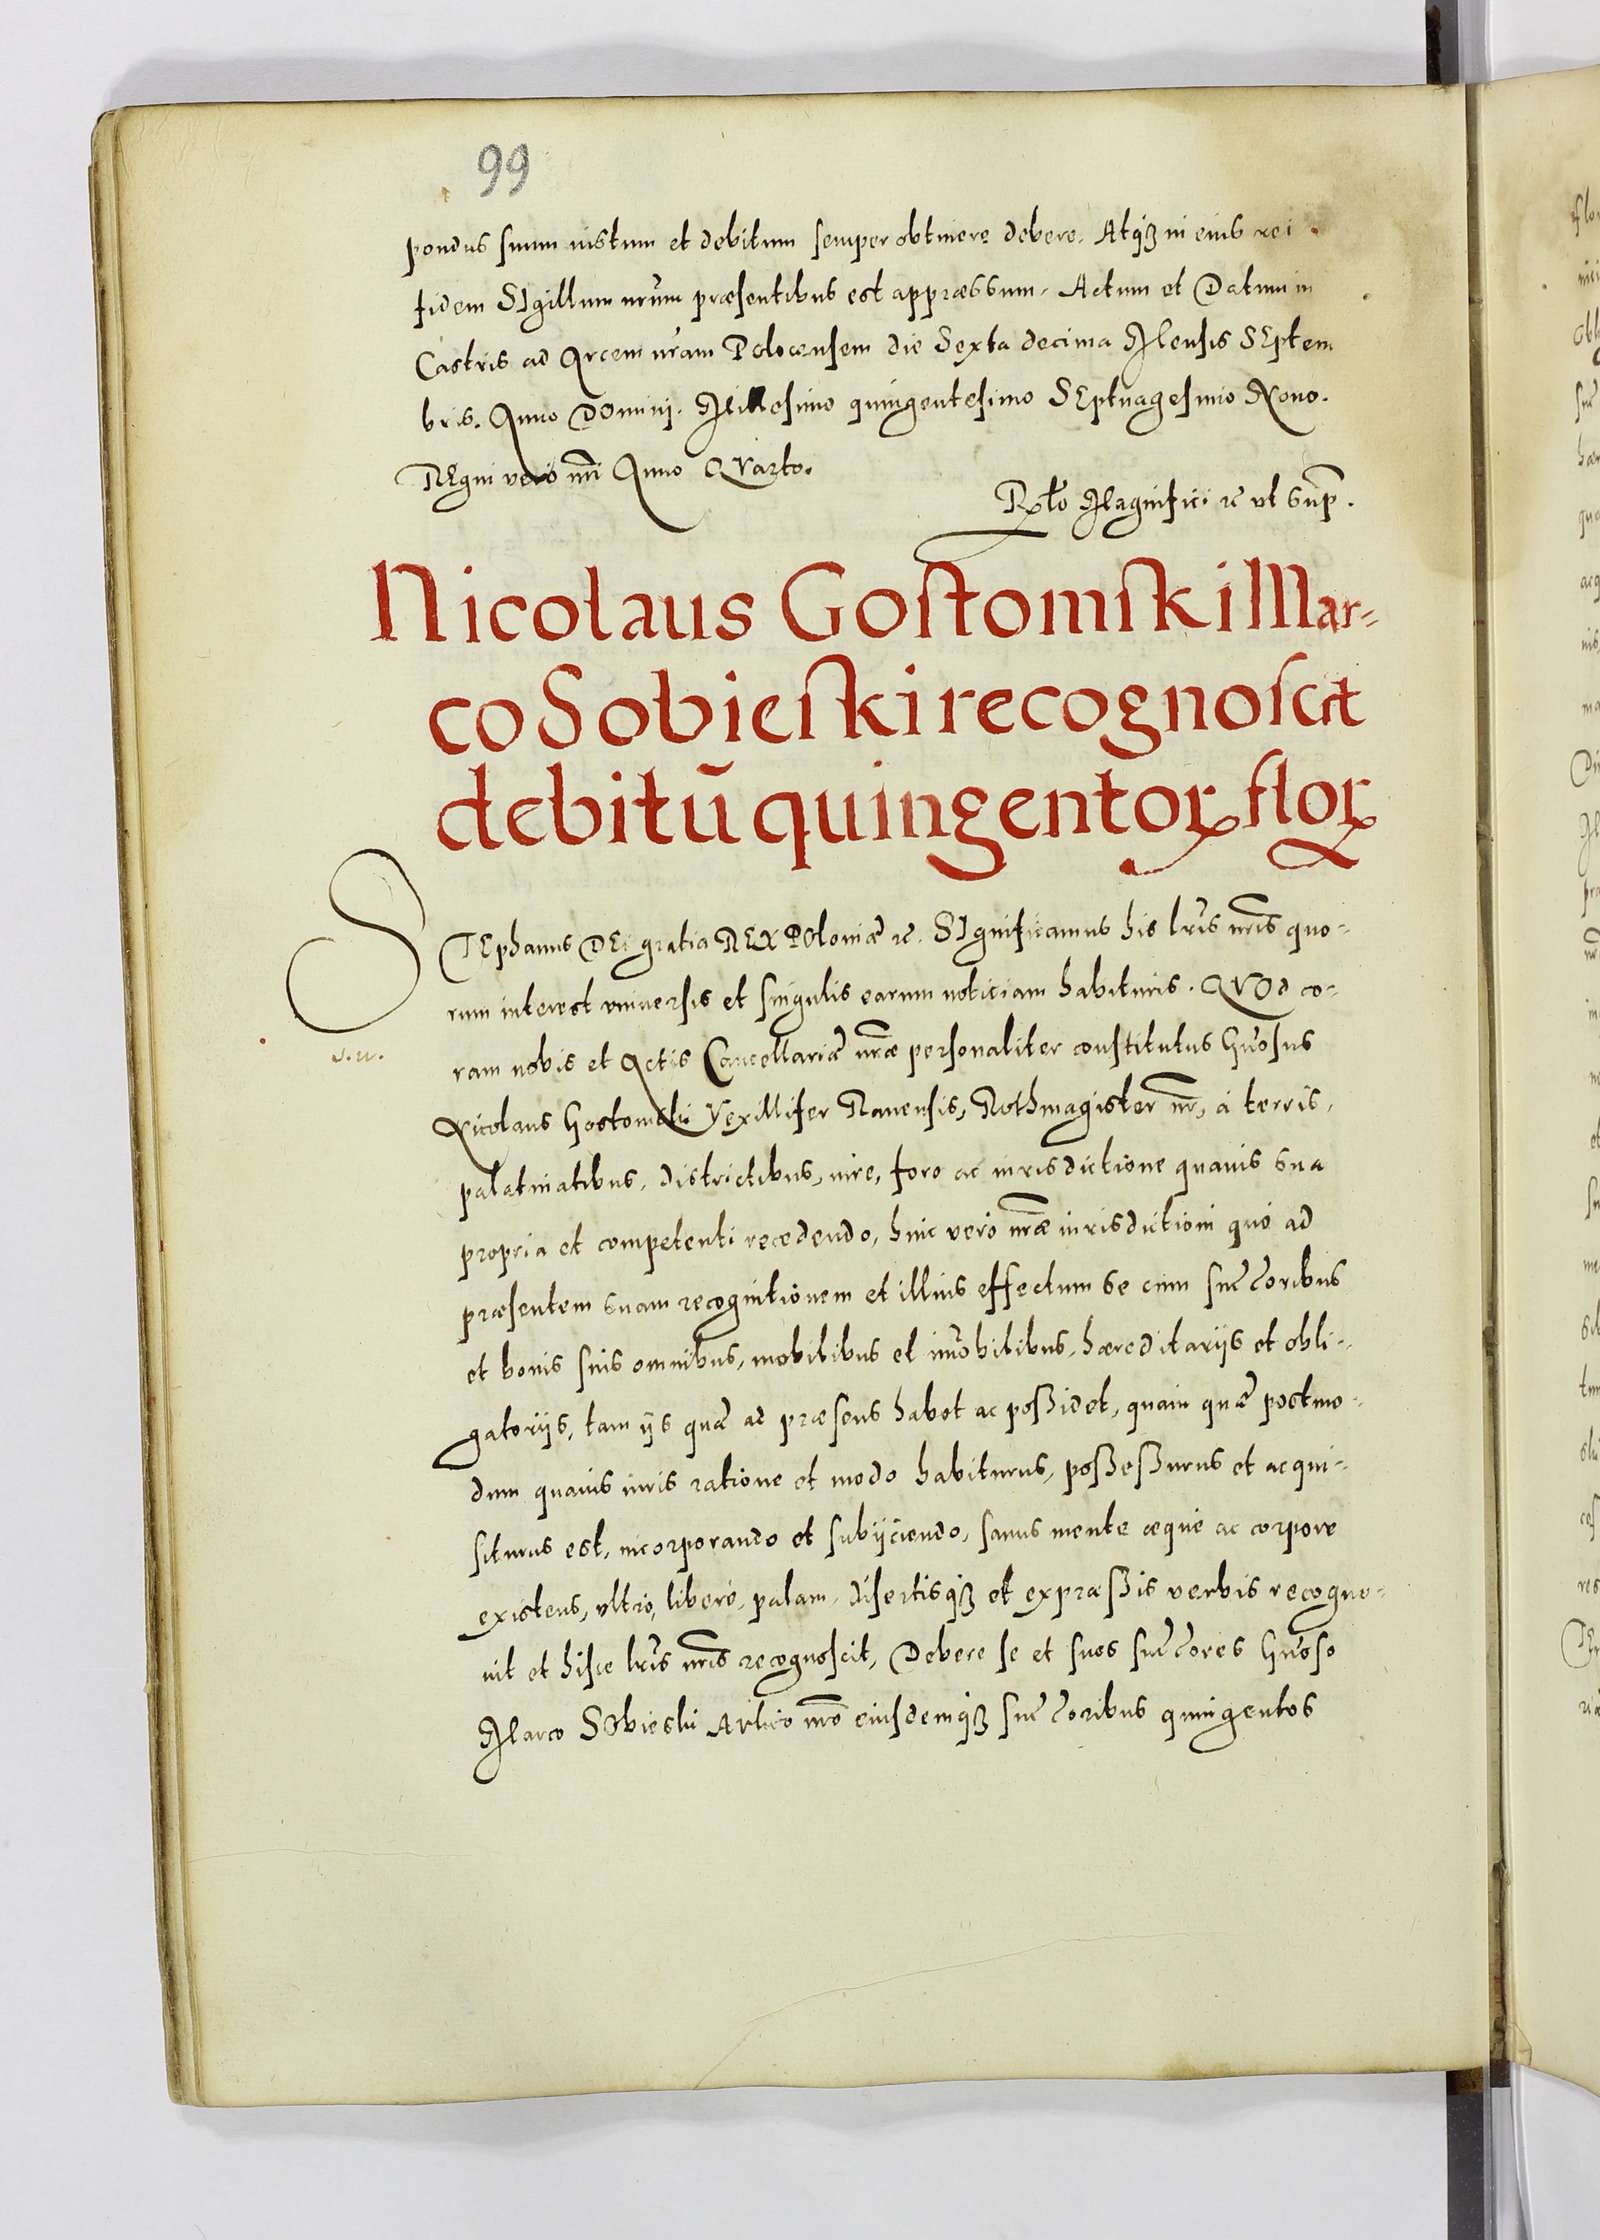 99
pondus suum iustum et debitum semper obtinere debere. Atq₃ in eius rei
fidem SIgillum nr̃um præsentibus est appræssum. Actum et Datum in
Castris ad Arcem nr̃am Polocensem die Sexta decima Mensis SEptem
bris. Anno DOmini. Millesimo quingentesimo SEptuagesimo Nono.
REgni vero nr̃i Anno QVarto.
Rꝉo Magnifici ꝛc̃ vt sup̃.
Nicolaus Gostomski Mar-
co Sobieski recognoscit
debitū quingentoꝝ floꝝ
STEphanus DEi gratia REX POloniæ ꝛc̃. SIgnificamus his lr̃is nr̃is quo-
rum interest vniuersis et singulis earum noticiam habituris. QVOd co-
ram nobis et Actis Cancellariæ nr̃æ personaliter constitutus Gn̄osus
Nicolaus Gostomski Vexillifer Rauensis, Rothmagister nr̃, à terris,
palatinatibus, districtibus, iure, foro ac iurisdictione quauis sua
propria et competenti recedendo, hinc verò nr̃æ iurisdictioni quò ad
præsentem suam recognitionem et illius effectum se cum succ̃oribus
et bonis suis omnibus, mobilibus et im̃obilibus, hæreditariis et obli-
gatorijs, tam ijs quæ ad præsens habet ac poßidet, quam quæ postmo-
dum quauis iuris ratione et modo habiturus, poßeßurus et acqui-
siturus est, incorporando et subijciendo, sanus mente æque ac corpore
existens, vltrò, liberè, palam, disertisq₃ et expræßis verbis recogno-
uit et hisce lr̃is nr̃is recognoscit, Debere se et suos succ̃ores Gn̄oso
Marco SObieski Aulico nr̃o eiusdemq₃ succ̃oribus quingentos